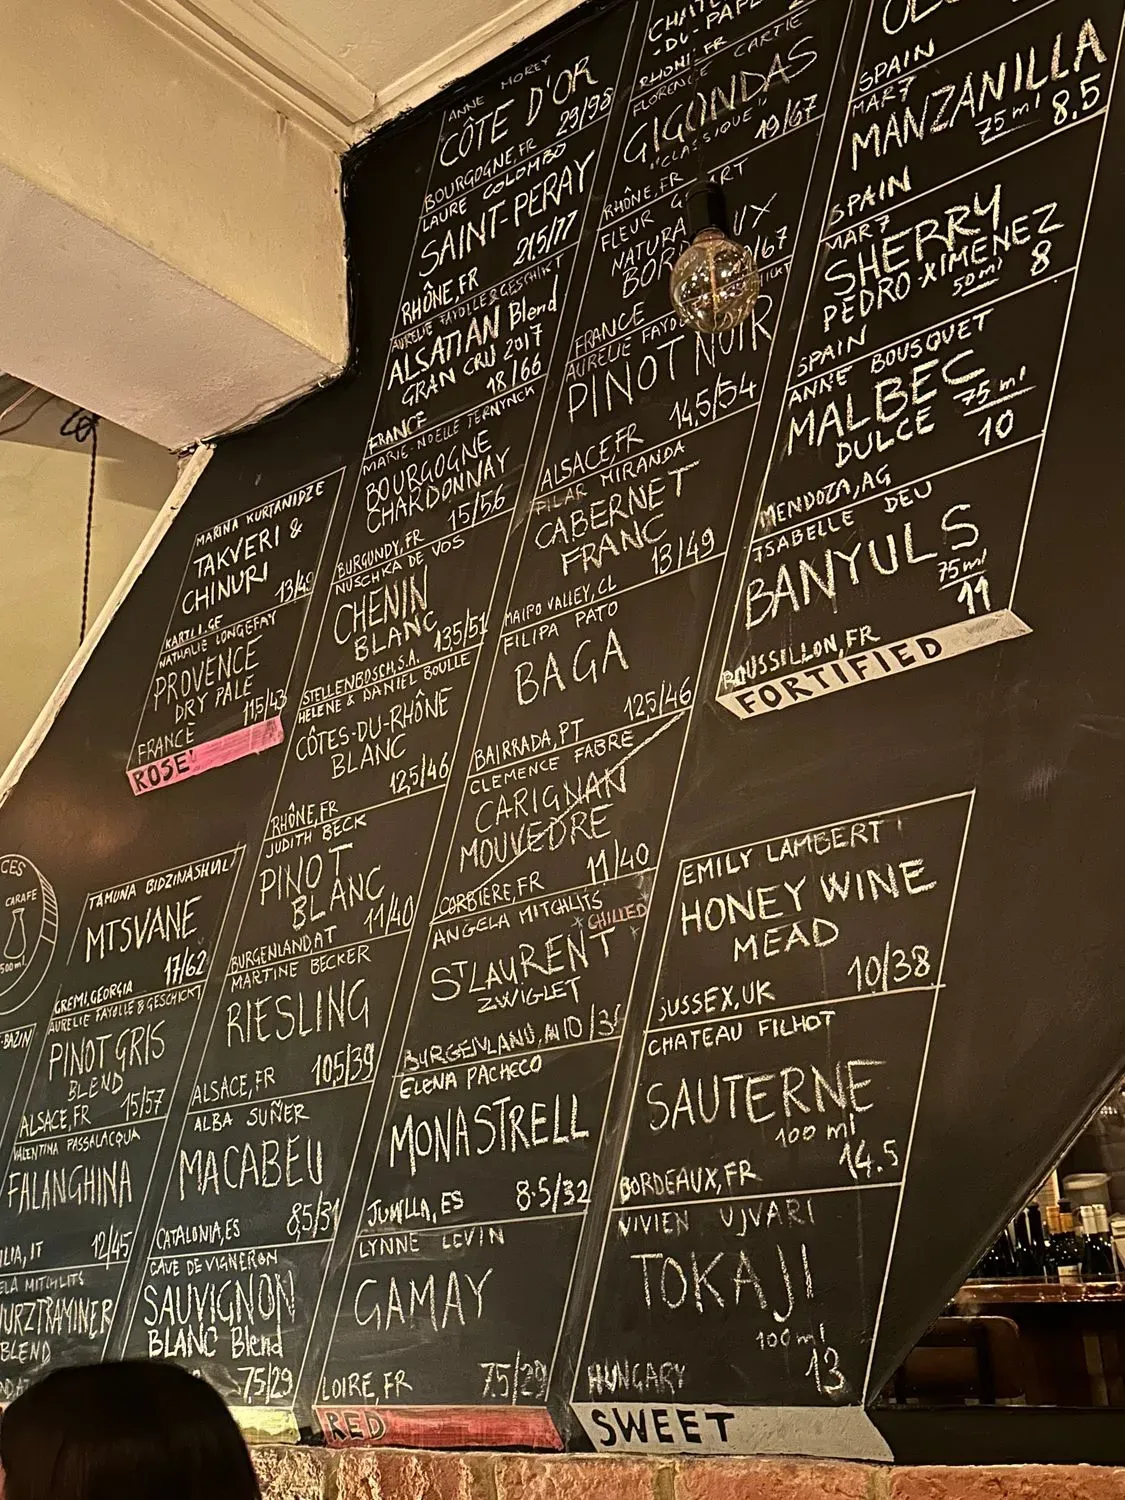 CES
CARAFE
500ml
-BAZIN
ILIA, IT 12/45
ELA MITCHLITS
BLEND
MARINA KURTANIDZE
TAKVERI &
CHINURI
KARTLI.GE
NATHALIE LONGEFAY
PROVENCE
DRY PALE
FRANCE
ROSE'
TAMUNA BIDZINASHVILI
MTSVANE
17/62
GREMI, GEORGIA
AURELIE FAYOLLE & GESCHICKT
PINOT GRIS
BLEND
ALSACE, FR 15/57
VALENTINA PASSALACQUA
FALANGHINA
ANNE MOREY
CÔTE D'OR
29/98
BOURGOGNE, FR
LAURE COLOMBO
SAINT-PERAY
21.5/77
RHÔNE, FR
AURELIE FAYOLLE & GESCHIKT
ALSATIAN Blend
GRAN CRU 2017
18/66
FRANCE
MARIE-NOELLE TERNYNCK
BOURGOGNE
CHARDONNAY
15/56
BURGUNDY, FR
NUSCHKA DE VOS
CHENIN
BLANC
13.5/51
STELLENBOSCH, S.A.
HELENE & DANIEL BOULLE
CÔTES-DU-RHÔNE
BLANC
12.5/46
RHÔNE, FR
JUDITH BECK
PINOT
BLANC
11/40
BURGENLAND, AT
MARTINE BECKER
RIESLING
ALSACE, FR 10.5/39
ALBA SUÑER
MACABEU
CATALONIA, ES 8,5/31
CAVE DE VIGNERON
SAUVIGNON
BLANC Blend
7.5/29
-DU-PAPE
RHONE, FR
FLORENCE CARTIE
GIGONDAS
"CLASSIQUE"
19/67
RHÔNE, FR
FLEUR
FRANCE
PINOT NOIR
14,5/54
ALSACE, FR
PILAR MIRANDA
CABERNET
FRANC
13/49
MAIPO VALLEY, CL
FILIPA PATO
BAGA
12.5/46
BAIRRADA, PT
CLEMENCE FABRE
CARIGNAN
MOUVEDRE
11/40
CORBIÈRE, FR
ANGELA MITCHLITS
*CHILLED*
ST LAURENT
ZWIGLET
ELENA PACHECO
MONASTRELL
JUMILLA, ES 8.5/32
LYNNE LEVIN
GAMAY
LOIRE, FR 7.5/29
RED
SPAIN
MAR 7
MANZANILLA
75ml 8.5
SPAIN
MAR 7
SHERRY
PEDRO XIMENEZ
50ml 8
SPAIN
ANNE BOUSQUET
MALBEC
DULCE 75ml
10
MENDOZA, AG
ISABELLE DEU
BANYULS
75ml
11
ROUSSILLON, FR
FORTIFIED
EMILY LAMBERT
HONEY WINE
MEAD
10/38
SUSSEX, UK
CHATEAU FILHOT
SAUTERNE
100 ml
BORDEAUX, FR 14.5
VIVIEN UJVARI
TOKAJI
100ml
HUNGARY 13
SWEET